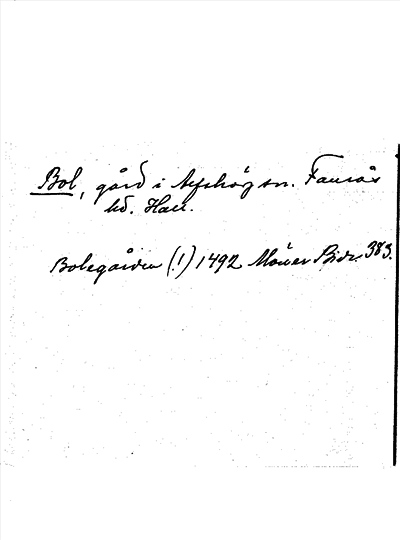 Bol, gård i Alfshög sn. Faurås
hd. Hall.
Bolegården (!) 1492 Möller Bidr. 383.